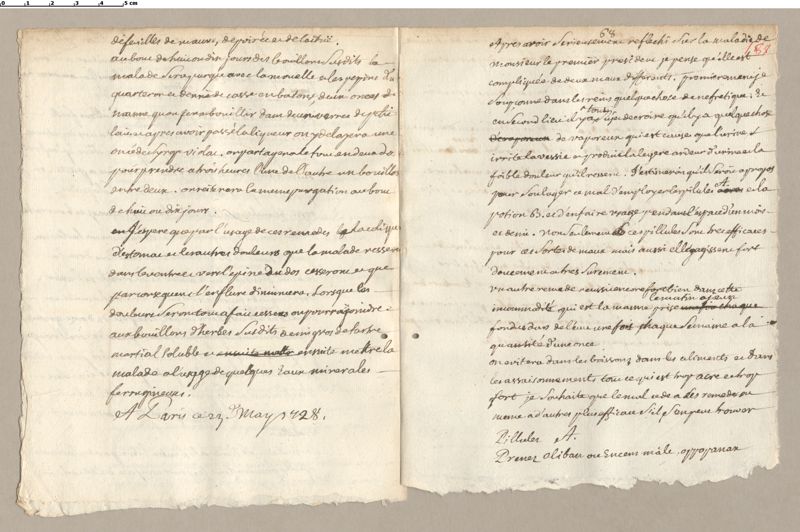 de feuilles de mauve, de poirée et de laitüe.
au bout de huit ou dix jours des bouillons susdits la
malade sera purgée avec la moelle et les pepins d'un
quarteron et demi de casse en batons, deux onces de
manne quon fera bouillir dans deux verres de petit
lait et apres avoir passé la liqueur on y delayera une
once de syrop violat. on partagera le tout en deux doses
pour prendre a trois heures l'une de l'autre un bouillon
entre deux. on reiterera la meme purgation au bout
de huit ou dix jours.
Jespere que par l'usage de ces remedes
d'estomac et les autres douleurs que la malade ressent
dans le ventre et vers l'epine du dos cesseront et que
par consequent l'enflure diminuera. Lorsque les
douleurs seront tout a fait cessées on pourra joindre
aux bouillons d'herbes susdits demi gros de tartre
martial soluble et ensuite mettre la
malade a l'usage de quelques eaux minerales
ferrugineuses.
A Paris ce 23 May 1728.
68
Apres avoir serieusement reflechi sur la maladie de
monsieur le premier president je pense qu'elle est
compliquée de deux maux differents. premierement je
soupçonne dans les reins quelque chose de nefretique. Et
en second lieu il y a tout lieu de croire qu'il y a quelque chose
de vaporeux qui est cause que l'urine
irrite la vessie et produit la legere ardeur d'urine et la
foible douleur qu'il ressent. J'estimerois qu'il seroit a propos
pour soulager ce mal d'employer les pilules A et la
potion B. et d'en faire usage pendant l'espace d'un mois
et demi. Non seulement ces pillules sont tres efficaces
pour ces sortes de maux mais aussi elles agissent fort
doucement et tres surement.
un autre remede reussiroit fort bien dans cette
incommodité qui est la manne prise le matin a jeun
fondue dans de l'eau une fois chaque semaine a la
quantité d'une once.
on evitera dans les boissons dans les aliments et dans
les assaisonnements tout ce qui est trop acre et trop
fort. je souhaite que le mal cede a ces remedes ou
meme a d'autres plus efficaces s'il s'en peut trouver
Pillules A.
Prenez oliban ou Encens mâle, oppopanax